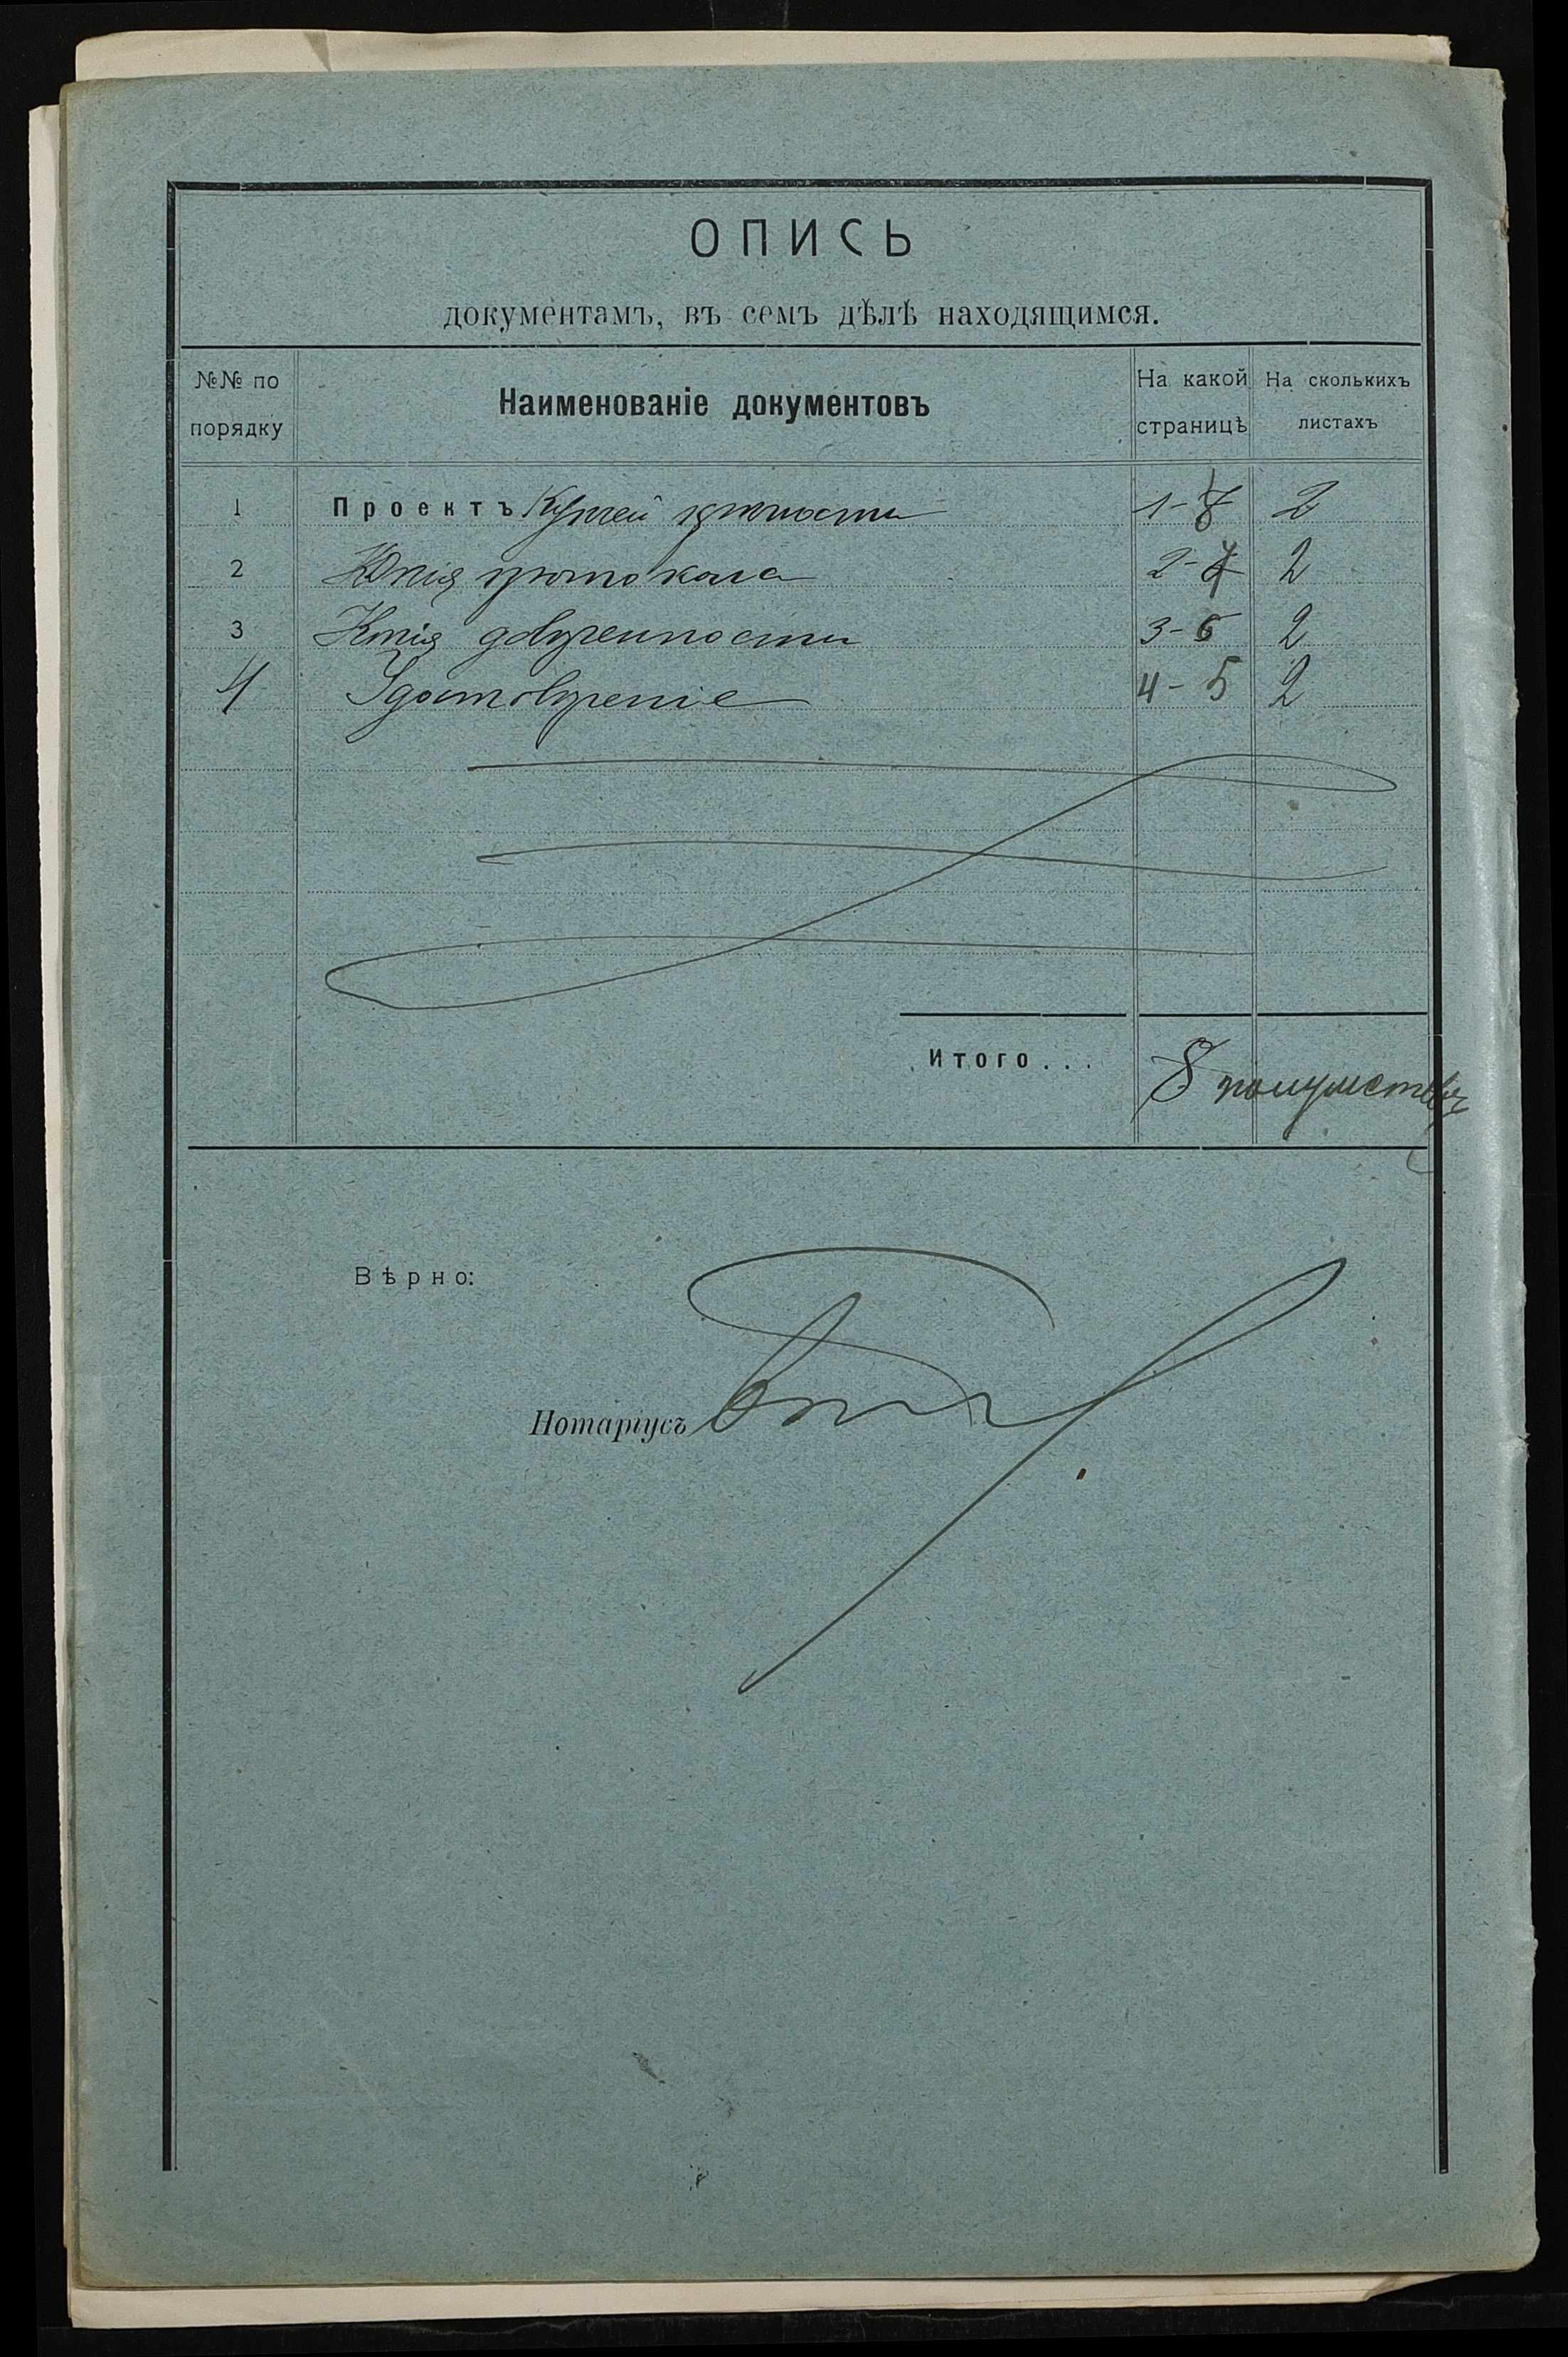 ОПИСЬ
документамъ, въ семъ дѣлѣ находящимся.
№№ по порядку Наименованіе документовъ На какой страницѣ На сколькихъ листахъ
1 Проектъ Купчей крѣпости 1-8 2
2 Копія протокола 2-7 2
3 Копія довѣренности 3-6 2
4 Удостовѣреніе 4-5 2
Итого... 8 полулистовъ
Вѣрно:
Нотаріусъ